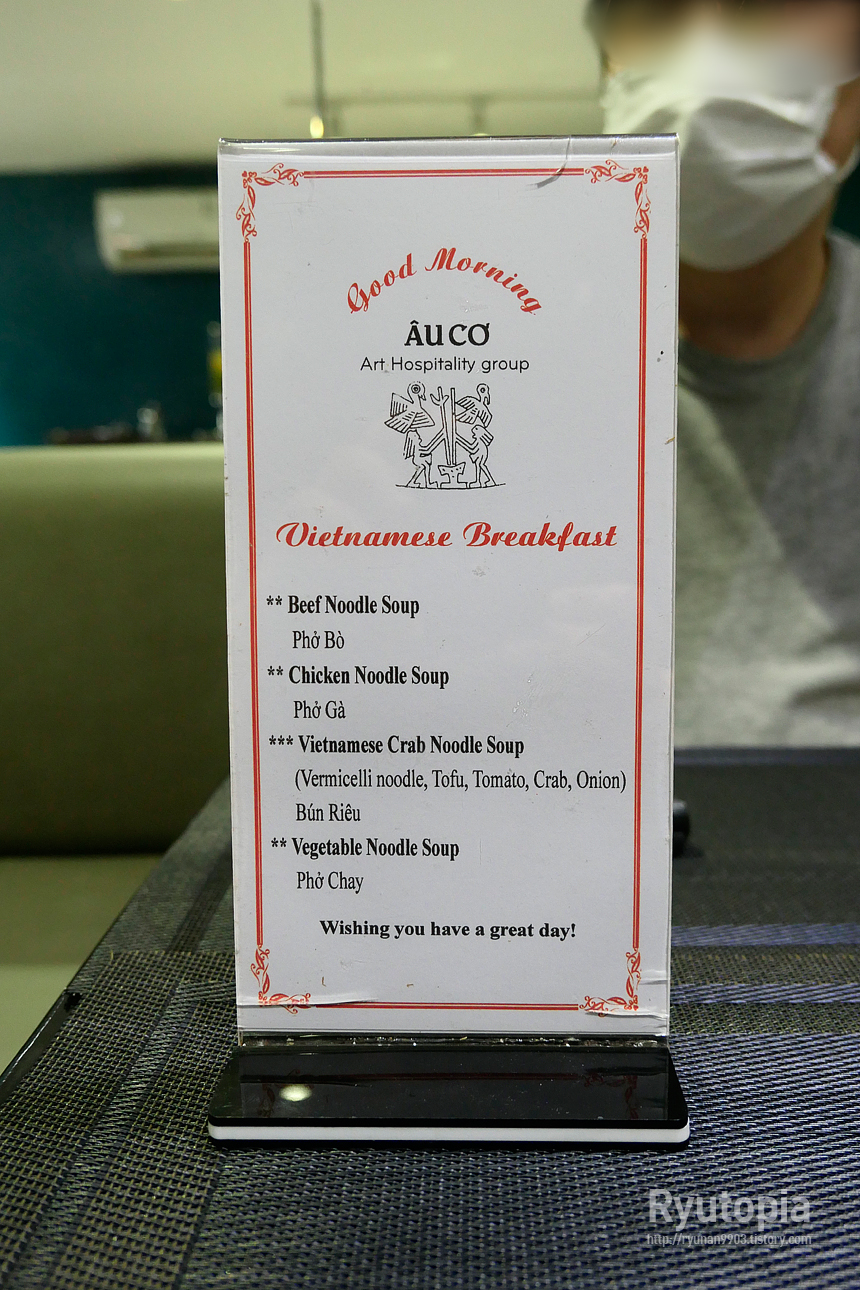 Good Morning
ÂU CƠ
Art Hospitality group
Vietnamese Breakfast
** Beef Noodle Soup
Phở Bò
** Chicken Noodle Soup
Phở Gà
*** Vietnamese Crab Noodle Soup
(Vermicelli noodle, Tofu, Tomato, Crab, Onion)
Bún Riêu
** Vegetable Noodle Soup
Phở Chay
Wishing you have a great day!
Ryutopia
http://ryunan9903.tistory.com